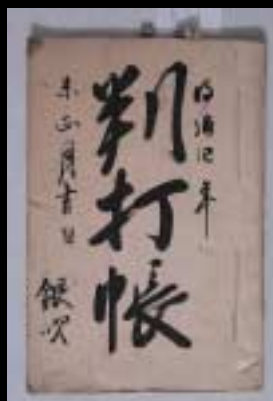 明治四年
判打帳
未正月吉日
銀次